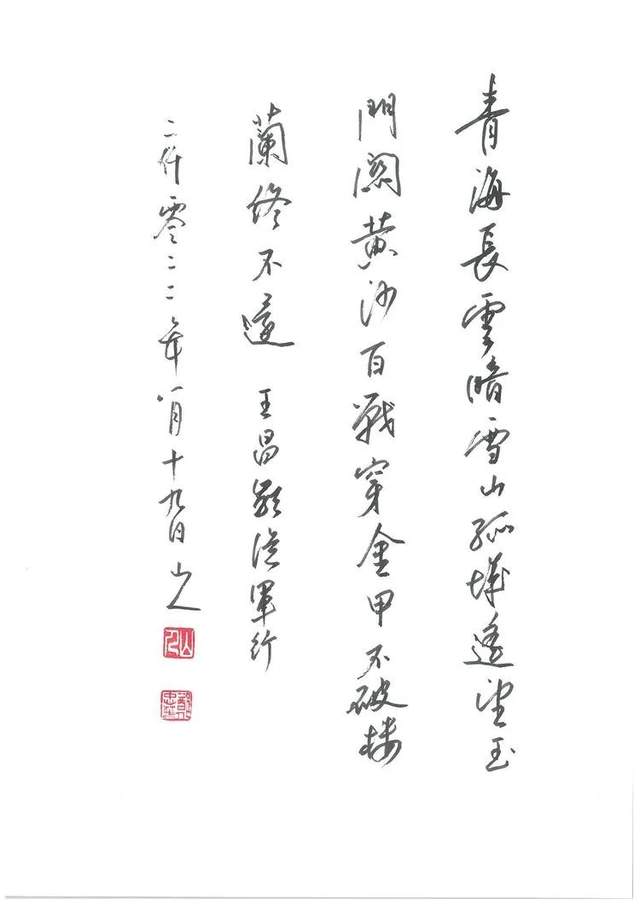 青海長雲暗雪山孤城遙望玉
門關黃沙百戰穿金甲不破樓
蘭終不還 王昌齡從軍行
二仟零二二年八月十九日 山人
山人